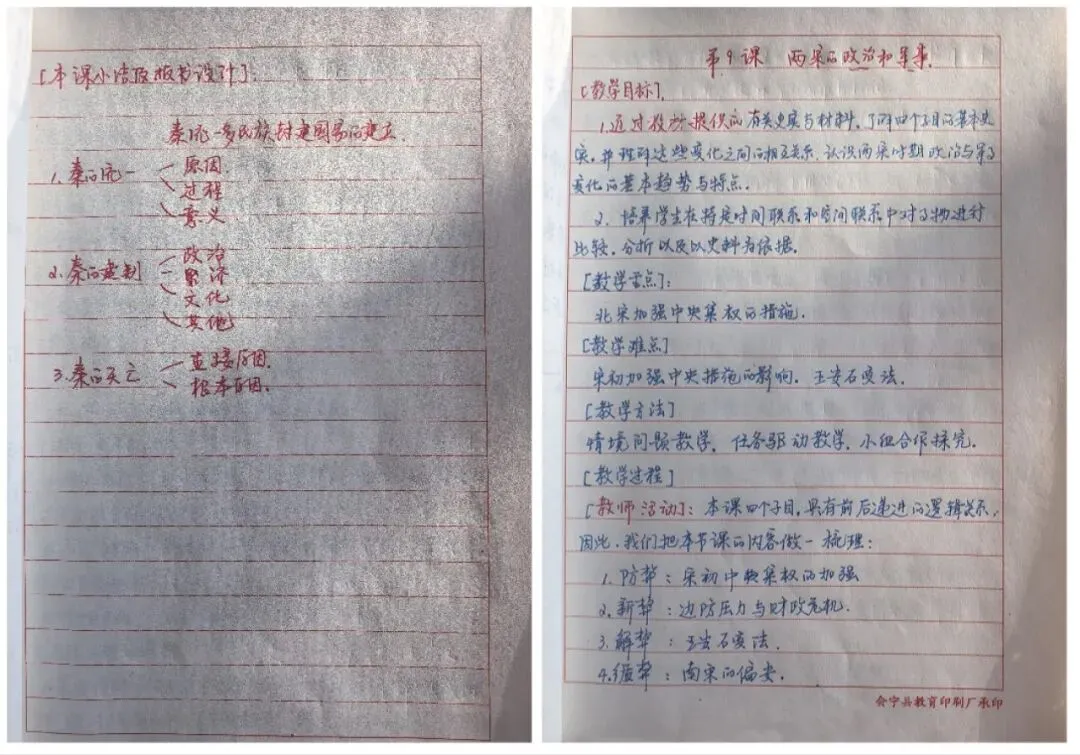 [本课小结及板书设计]:
秦统一多民族封建国家的建立
1. 秦的统一
原因
过程
意义
2. 秦的建制
政治
经济
文化
其他
3. 秦的灭亡
直接原因.
根本原因.
第9课 两宋的政治和军事.
[教学目标].
1. 通过教材提供的有关史实与材料, 了解四个子目的基本史
实, 并理解这些变化之间的相互关系. 认识两宋时期政治与军事
变化的基本趋势与特点.
2. 培养学生在特定时间联系和空间联系中对事物进行
比较, 分析以及以史料为依据.
[教学重点]:
北宋加强中央集权的措施.
[教学难点]
宋初加强中央措施的影响. 王安石变法.
[教学方法]
情境问题教学, 任务驱动教学, 小组合作探究.
[教学过程]
[教师活动]: 本课四个子目, 具有前后递进的逻辑关系,
因此, 我们把本节课的内容做一梳理:
1. 防弊: 宋初中央集权的加强
2. 新弊: 边防压力与财政危机.
3. 解弊: 王安石变法.
4. 弊: 南宋的偏安.
会宁县教育印刷厂承印